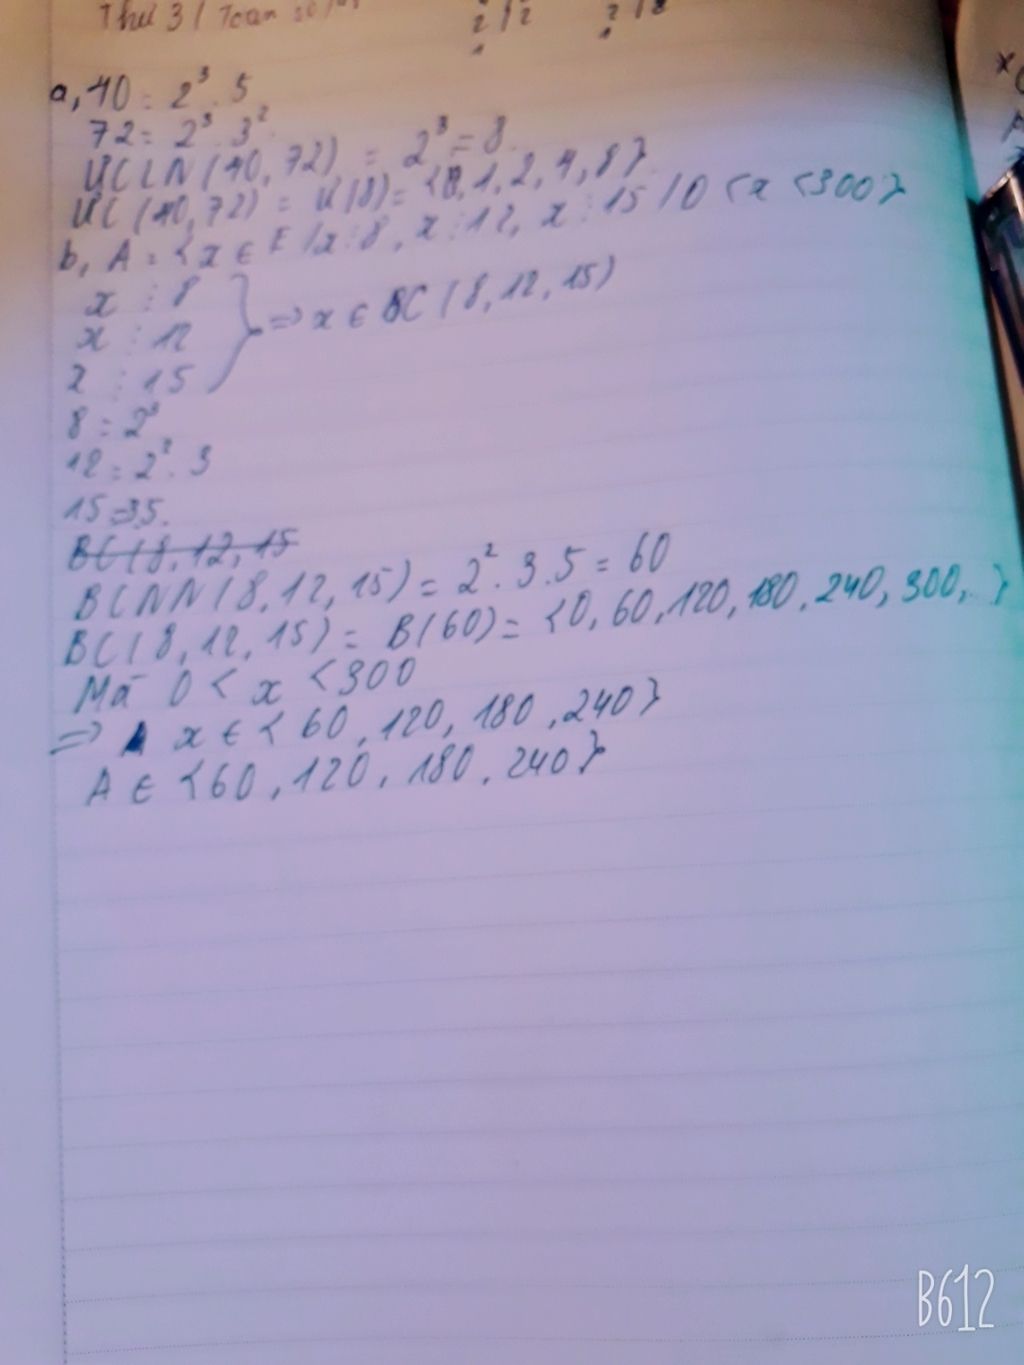 Thứ 3 / Toán số
a, 40 = 2³. 5
72 = 2³. 3²
ƯCLN (40, 72) = 2³ = 8.
ƯC (40, 72) = Ư(8) = {0, 1, 2, 4, 8}
b, A = {x ∈ E / x ⋮ 8, x ⋮ 12, x ⋮ 15 / 0 < x < 300}
x ⋮ 8
x ⋮ 12 } => x ∈ BC (8, 12, 15)
x ⋮ 15
8 = 2³
12 = 2². 3
15 = 3.5.
BC (8, 12, 15
BCNN (8, 12, 15) = 2². 3. 5 = 60
BC (8, 12, 15) = B(60) = {0, 60, 120, 180, 240, 300, ..}
Mà 0 < x < 300
=> x ∈ { 60, 120, 180, 240}
A ∈ {60, 120, 180, 240}
B612